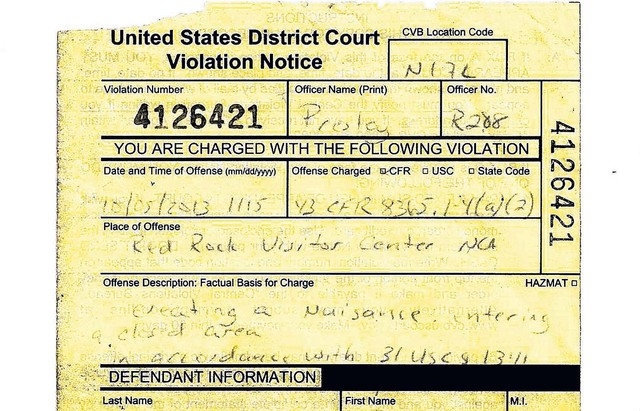 United States District Court
Violation Notice
CVB Location Code
N17L
Violation Number
4126421
Officer Name (Print)
Presley
Officer No.
R208
YOU ARE CHARGED WITH THE FOLLOWING VIOLATION
4126421
Date and Time of Offense (mm/dd/yyyy)
10/05/2013 1115
Offense Charged CFR USC State Code
43 CFR 8365.1-4(a)(2)
Place of Offense
Red Rock Visitor Center NCA
Offense Description: Factual Basis for Charge
HAZMAT
creating a Nuisance entering
a closd area
in accordance with 31 USC § 1341
DEFENDANT INFORMATION
Last Name
First Name
M.I.